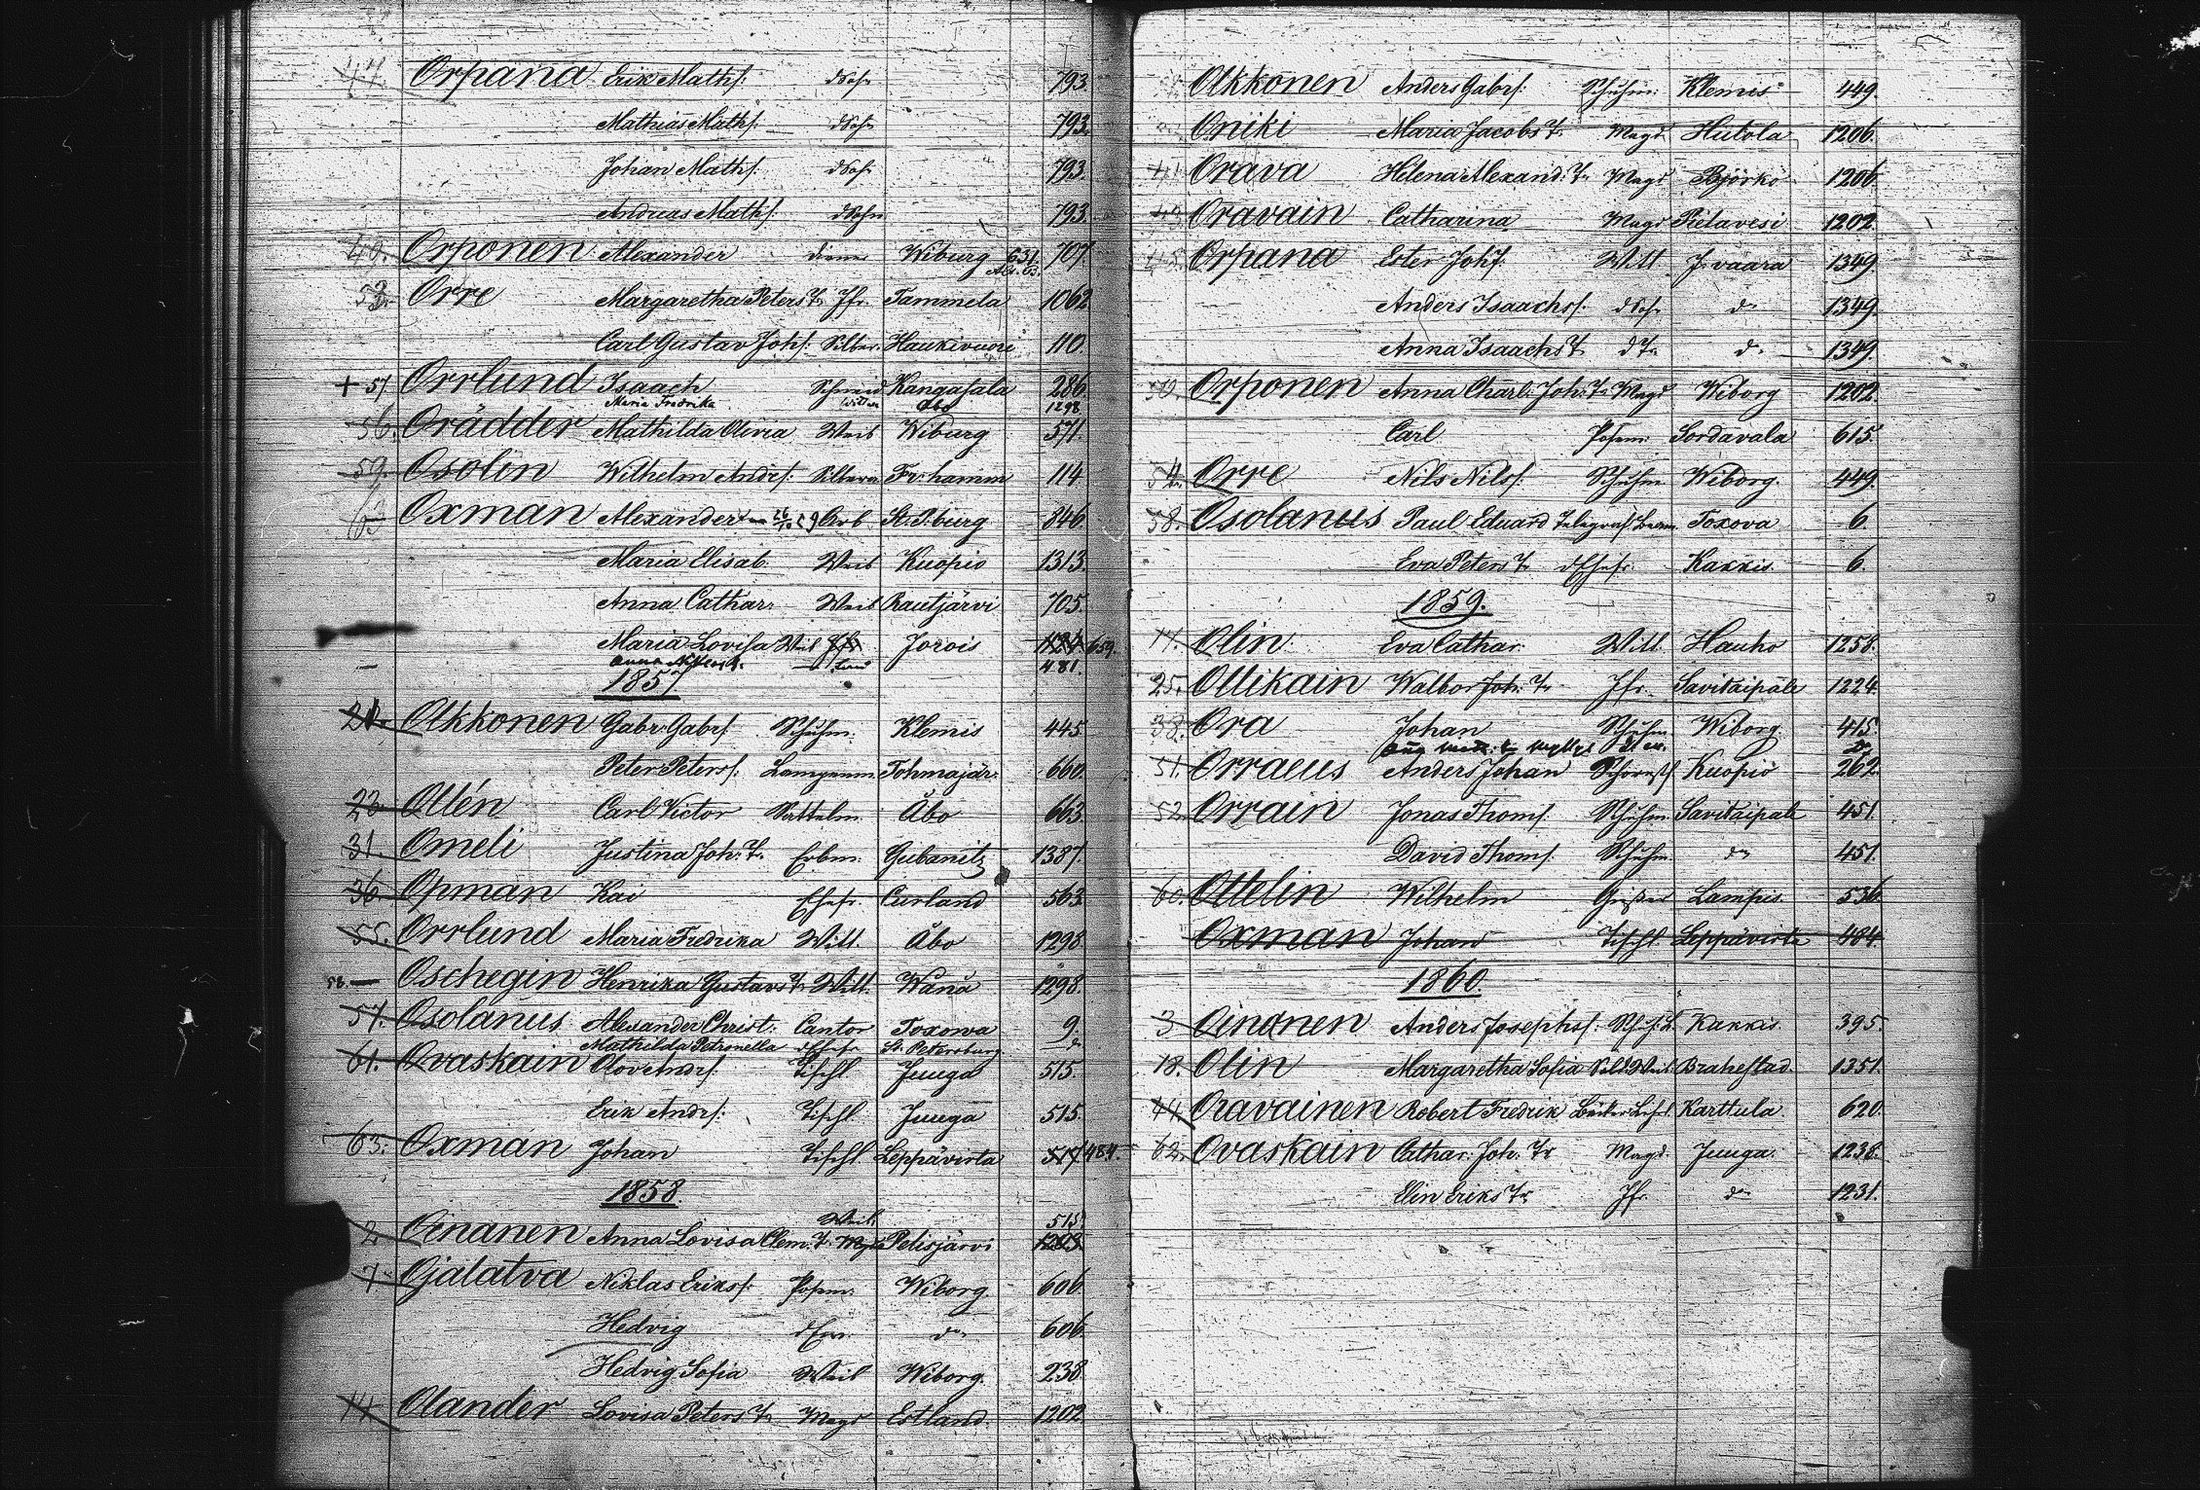 47. Orpana Erik Maths: dSohn 793.
Mathias Maths: dSohn 793.
Johan Maths: dSohn 793.
Andreas Maths: dSohn 793.
49. Orponen Alexander diener Wiburg 631. 707.
53. Orre Margaretha Peters Tr Jfr. Tammela 1062
Carl Gustav Johs: Silber. Haukivuori 110.
+ 51 Orrlund Isaach Schmid Kangasala 286.
Maria Fredrika Wittwe Åbo 1298
56. Orädder Mathilda Olivia Weib Wiburg 571.
59. Osolin Wilhelm Andrs: Silberar. Fr:hamm 114
63 Oxman Alexander 26/10 59 Arb. St. P.burg 846.
Maria Elisab. Weib Kuopio 1313.
Anna Cathar: Weib Rautjärvi 705.
Maria Lovisa Wei Jfr Jorois 659.
Anna 481.
1857
21. Olkkonen Gabr. Gabrs: Schuhm. Klemis 445
Peter Peters: Lampenm. Tohmajär: 660.
23. Ollén Carl Victor Sattelm. Åbo 663.
31. Omeli Justina Joh: Tr. Erbm. Gubanitz 1387.
36. Opman Kai Ehefr. Curland 563.
55. Orrlund Maria Fredrika Witt. Åbo 1298.
58. Oschegin Henrika Gustavs Tr. Witt. Wånå 1298.
57. Osolanus Alexander Christ: Cantor Toxowa 9.
Mathilda Petronella dEhefr St. Petersburg do
61. Ovaskain Olov Andrs: Tischl. Juuga 515.
Erik Andrs: Tischl. Juuga 515.
65. Oxman Johan Tischl. Leppävirta 517 484.
1858.
Weib. 515
2 Oinanen Anna Lovisa Clem: Tr. Magd Pelisjärvi 1203.
7. Ojalatva Niklas Eriks: Posem: Wiborg. 606.
Hedvig dFr. do 606.
Hedvig Sofia Weib Wiborg. 238.
14 Olander Lovisa Peters Tr Magd Estland. 1202.
Olkkonen Anders Gabrs: Schuhm: Klemis 449.
Oniki Maria Jacobs Tr. Magd Hiitola 1206.
41 Orava Helena Alexand: Tr Magd Björkö 1206.
43 Oravain Catharina Magd Pielavesi 1202.
45. Orpana Ester Johs: Witt J.vaara 1349.
Anders Isaachs: dSohn do 1349.
Anna Isaachs Tr dTr do 1349.
50. Orponen Anna Charl: Joh: Tr Magd Wiborg 1202.
Carl Posem: Sordavala 615.
54. Orre Nils Nils: Schuhm. Wiborg. 449.
58. Osolanus Paul Eduard Telegraf Beam. Toxova 6.
Eva Peters Tr dEhefr. Kakkis. 6.
1859.
14. Olin Eva Cathar. Witt. Hauho 1258.
25. Ollikain Walbor Joh: Tr Jfr. Savitaipale 1224.
38. Ora Johan Schuhm. Wiborg. 415.
51. Orraeus Anders Johan Schornstf Kuopio 262.
52. Orrain Jonas Thoms: Schuhm. Savitaipale 451.
David Thoms: Schuhm. do 451.
60. Ottelin Wilhelm Gießer Lampis. 536.
Oxman Johan Tischl. Leppävirta 484.
1860.
3 Oinonen Anders Josephss: Schuh: L. Kakkis. 395.
18. Olin Margaretha Sofia Sold. Weib. Brahestad. 1351.
44. Oravainen Robert Fredrik Bäcker Lehrl. Karttula. 620.
62. Ovaskain Cathar: Joh: Tr Magd. Juuga. 1238.
Elin Eriks Tr. Jfr. do 1231.